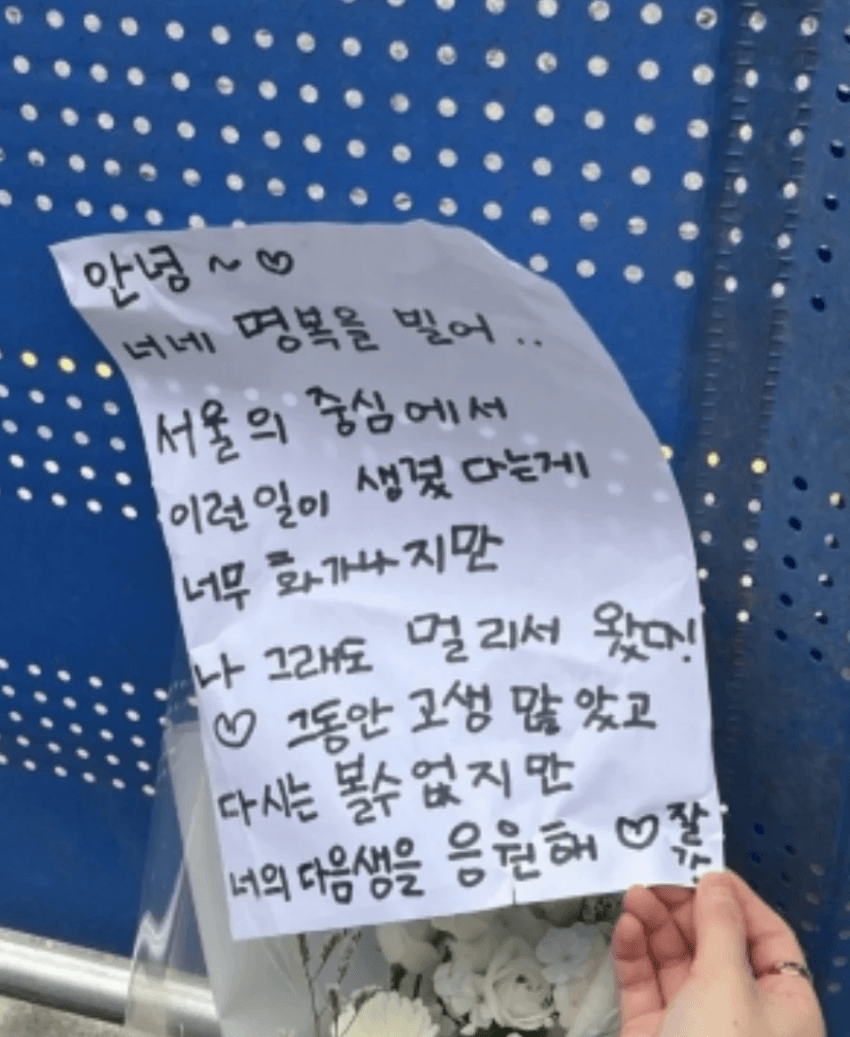 안녕 ~ ♡
너네 명복을 빌어 ..
서울의 중심에서
이런일이 생겼다는게
너무 화가나지만
나 그래도 멀리서 왔다!
♡ 그동안 고생 많았고
다시는 볼수 없지만
너의 다음생을 응원해 ♡ 잘
가